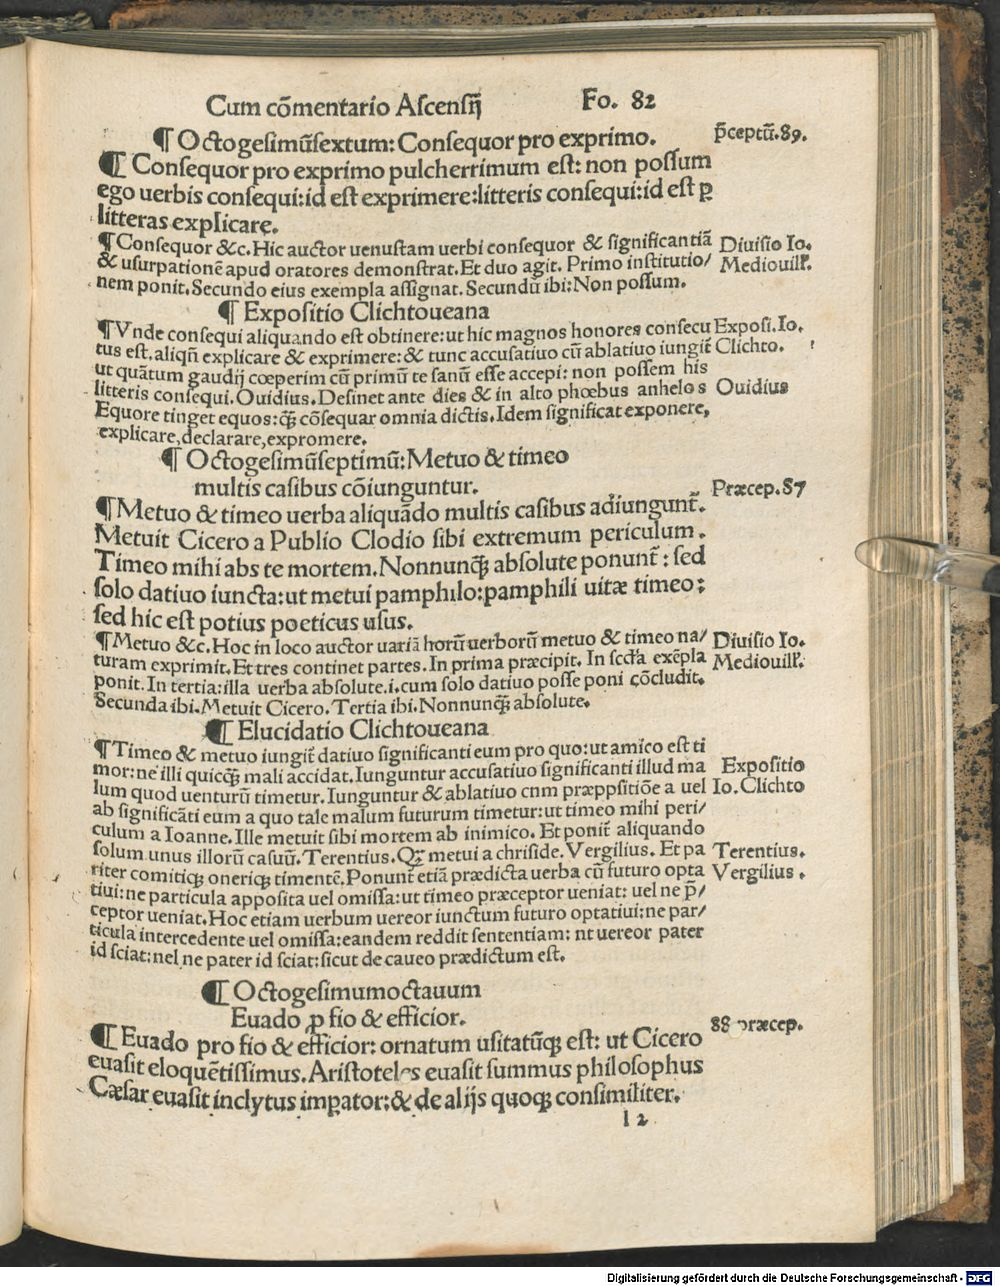 Cum cõmentario Ascensij Fo. 82
¶ Octogesimũsextum: Consequor pro exprimo. p̃ceptũ.89.
¶ Consequor pro exprimo pulcherrimum est: non possum
ego uerbis consequi: id est exprimere: litteris consequi: id est ꝑ
litteras explicare.
¶ Consequor &c. Hic auctor uenustam uerbi consequor & significantiã Diuisio Io.
& usurpationẽ apud oratores demonstrat. Et duo agit. Primo institutio/ Mediouill̃.
nem ponit. Secundo eius exempla assignat. Secundũ ibi: Non possum.
¶ Expositio Clichtoueana
¶ Vnde consequi aliquando est obtinere: ut hic magnos honores consecu Exposi. Io.
tus est. aliqñ explicare & exprimere: & tunc accusatiuo cũ ablatiuo iungit̃ Clichto.
ut quãtum gaudij cœperim cũ primũ te sanũ esse accepi: non possem his
litteris consequi. Ouidius. Desinet ante dies & in alto phœbus anhelos Ouidius
Equore tinget equos: q̃ꝫ cõsequar omnia dictis. Idem significat exponere,
explicare, declarare, expromere.
¶ Octogesimũseptimũ: Metuo & timeo
multis casibus cõiunguntur. Præcep.87
¶ Metuo & timeo uerba aliquãdo multis casibus adiungunt̃.
Metuit Cicero a Publio Clodio sibi extremum periculum.
Timeo mihi abs te mortem. Nonnunq̃ꝫ absolute ponunt̃: sed
solo datiuo iuncta: ut metui pamphilo: pamphili uitæ timeo:
sed hic est potius poeticus usus.
¶ Metuo &c. Hoc in loco auctor uariã horũ uerborũ metuo & timeo na/ Diuisio Io.
turam exprimit. Et tres continet partes. In prima præcipit. In secd̃a exẽpla Mediouill̃.
ponit. In tertia: illa uerba absolute .i. cum solo datiuo posse poni cõcludit.
Secunda ibi. Metuit Cicero. Tertia ibi. Nonnunq̃ꝫ absolute.
¶ Elucidatio Clichtoueana
¶ Timeo & metuo iungit̃ datiuo significanti eum pro quo: ut amico est ti
mor: ne illi quicq̃ꝫ mali accidat. Iunguntur accusatiuo significanti illud ma Expositio
lum quod uenturũ timetur. Iunguntur & ablatiuo cnm præppsitiõe a uel Io. Clichto
ab significãti eum a quo tale malum futurum timetur: ut timeo mihi peri/
culum a Ioanne. Ille metuit sibi mortem ab inimico. Et ponit̃ aliquando
solum unus illorũ casuũ. Terentius. Qꝫ metui a chriside. Vergilius. Et pa Terentius.
riter comitiqꝫ oneriqꝫ timentẽ. Ponunt̃ etiã prædicta uerba cũ futuro opta Vergilius.
tiui: ne particula apposita uel omissa: ut timeo præceptor ueniat: uel ne p̃/
ceptor ueniat. Hoc etiam uerbum uereor iunctum futuro optatiui: ne par/
ticula intercedente uel omissa: eandem reddit sententiam: nt uereor pater
id sciat: nel ne pater id sciat: sicut de caueo prædictum est.
¶ Octogesimumoctauum
Euado ꝓ fio & efficior. 88 præcep.
¶ Euado pro fio & efficior: ornatum usitatũqꝫ est: ut Cicero
euasit eloquẽtissimus. Aristoteles euasit summus philosophus
Cæsar euasit inclytus imꝑator: & de alijs quoqꝫ consimiliter.
l 2
Digitalisierung gefördert durch die Deutsche Forschungsgemeinschaft - DFG